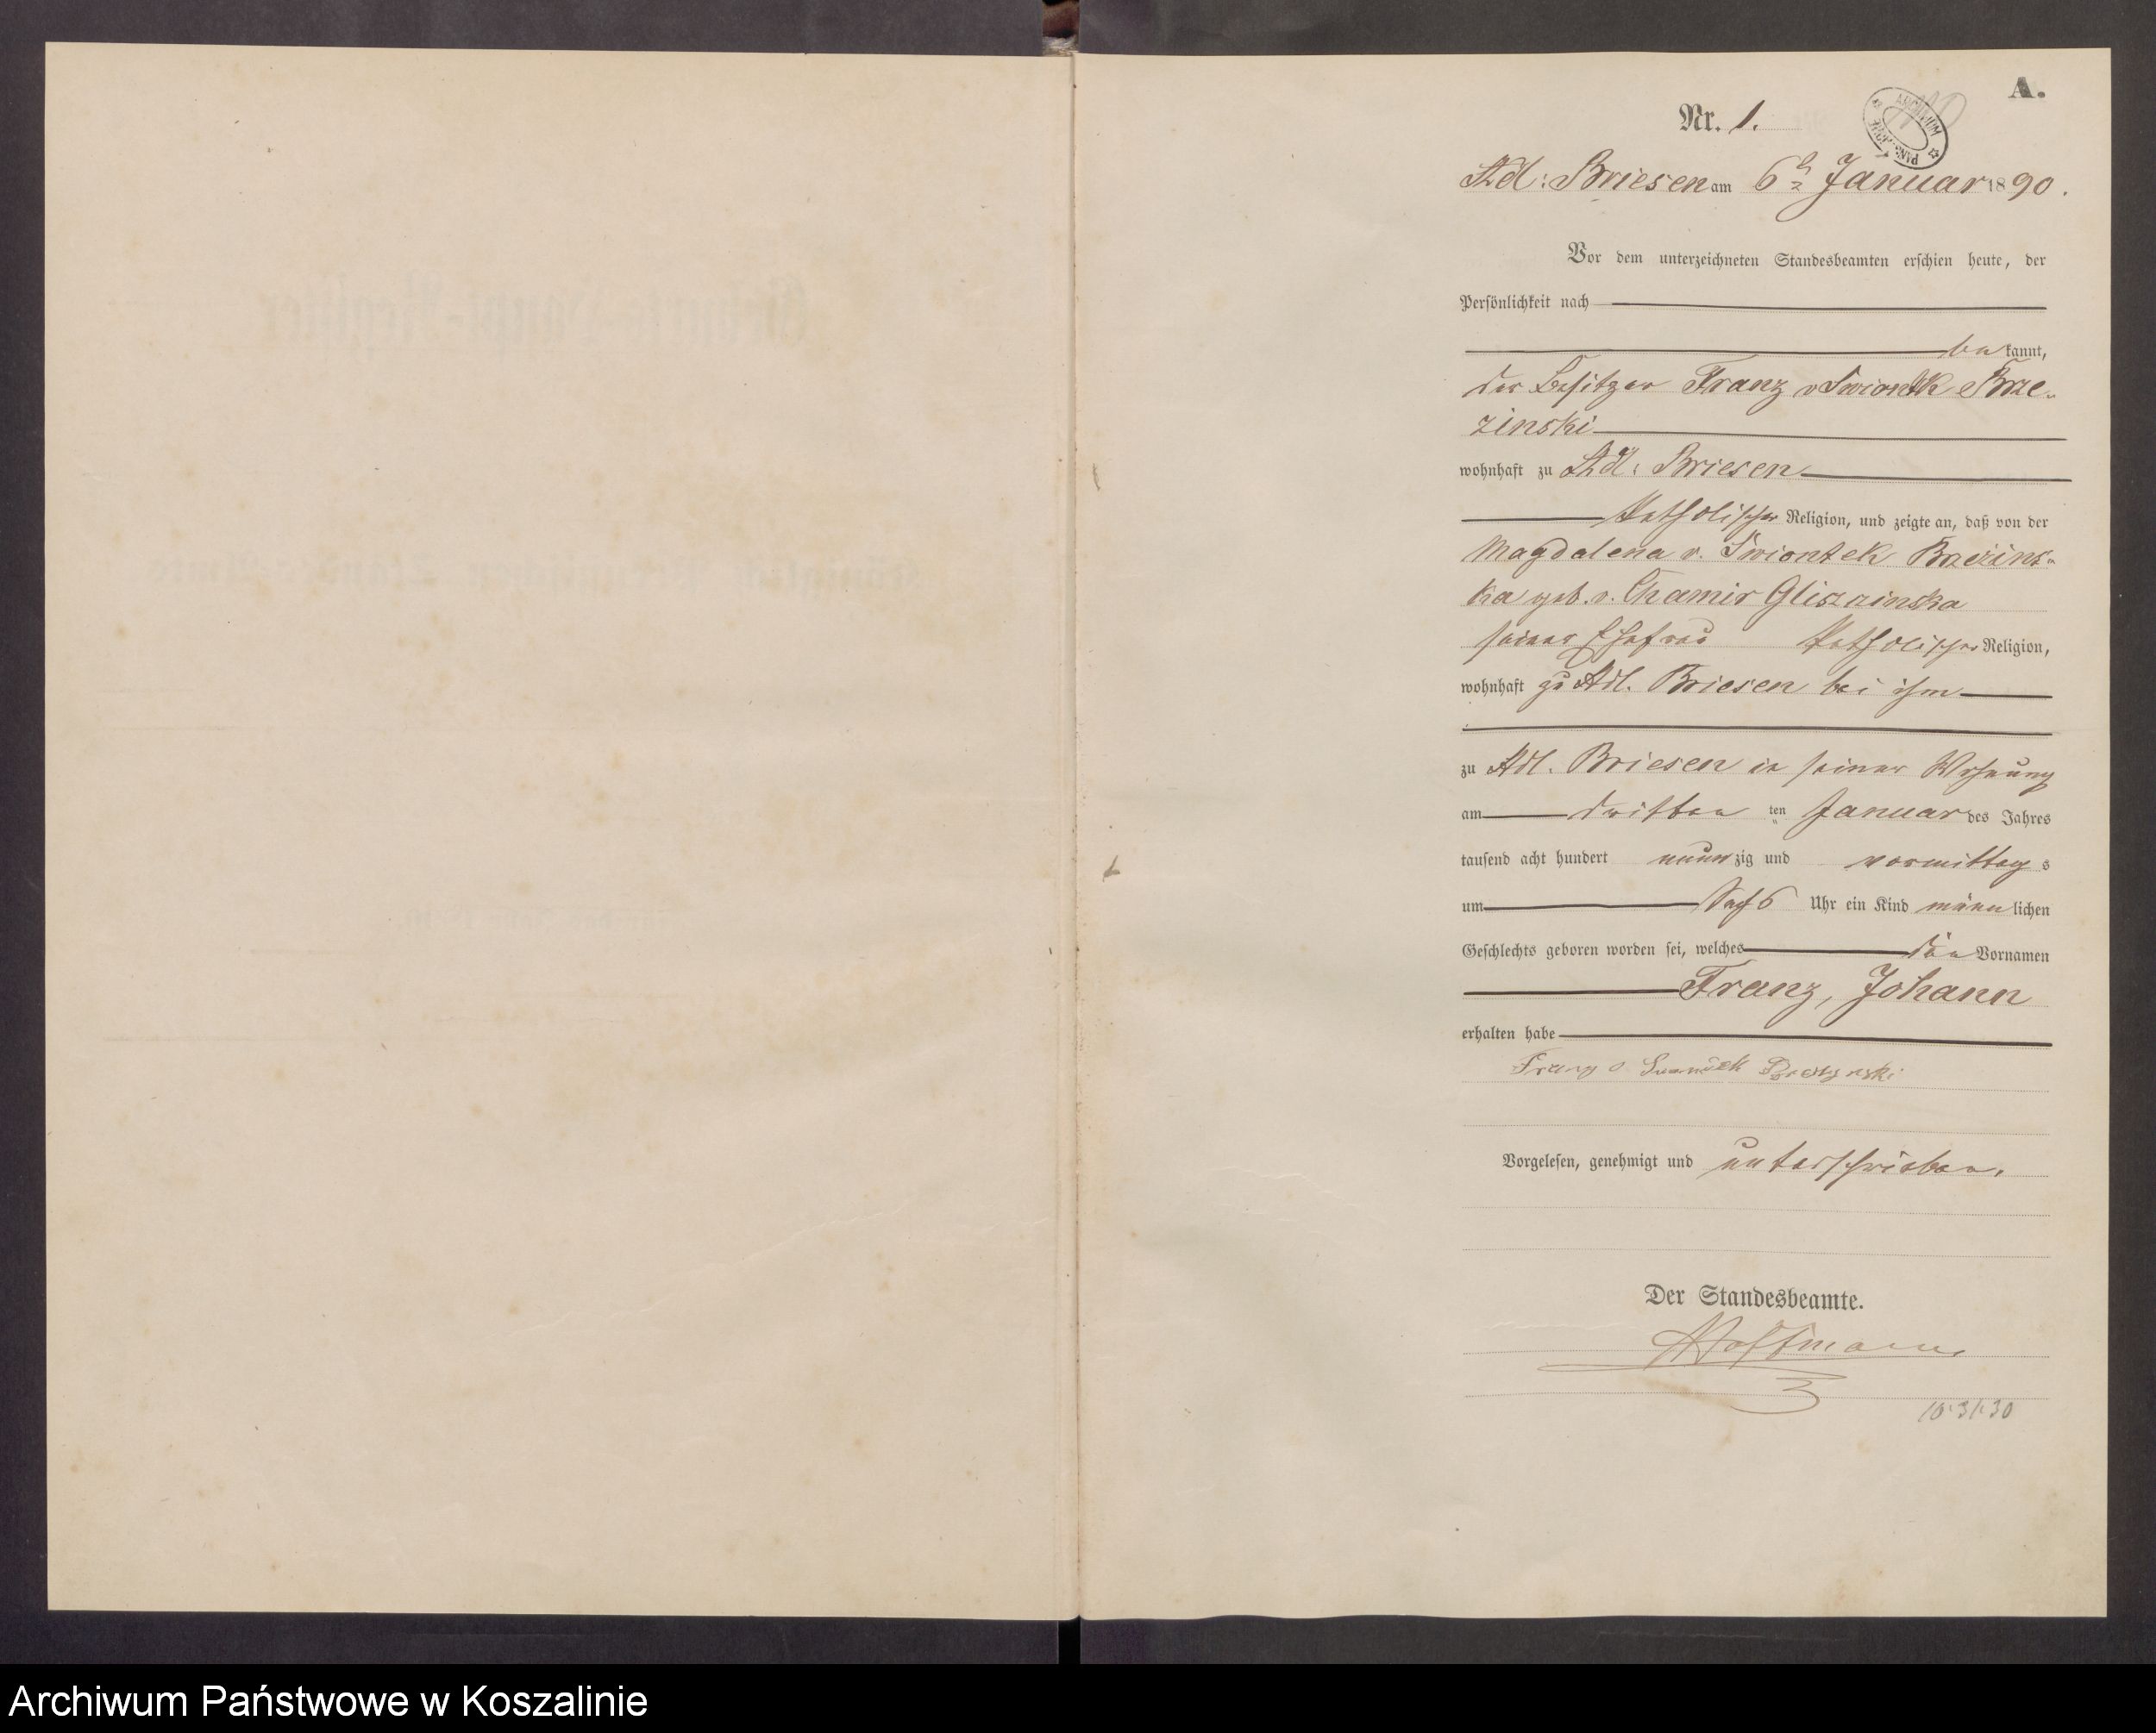 A.
Nr. 1.
ARCHIWUM PAŃSTWOWE
Adl: Briesen am 6ten Januar 1890.
Vor dem unterzeichneten Standesbeamten erschien heute, der
Persönlichkeit nach
bekannt,
der Besitzer Franz v Swiontek Brze-
zinski
wohnhaft zu Adl: Briesen
katholischer Religion, und zeigte an, daß von der
Magdalena v. Swiontek Brzezins-
ka geb. v. Chamir Gliszczinska
seiner Ehefrau katholischer Religion,
wohnhaft zu Adl. Briesen bei ihm
zu Adl. Briesen in seiner Wohnung
am dritten ten Januar des Jahres
tausend acht hundert neunzig und vormittags
um sechs Uhr ein Kind männlichen
Geschlechts geboren worden sei, welches die Vornamen
Franz, Johann
erhalten habe
Franz v
Vorgelesen, genehmigt und unterschrieben.
Der Standesbeamte.
Hoffmann
Archiwum Państwowe w Koszalinie